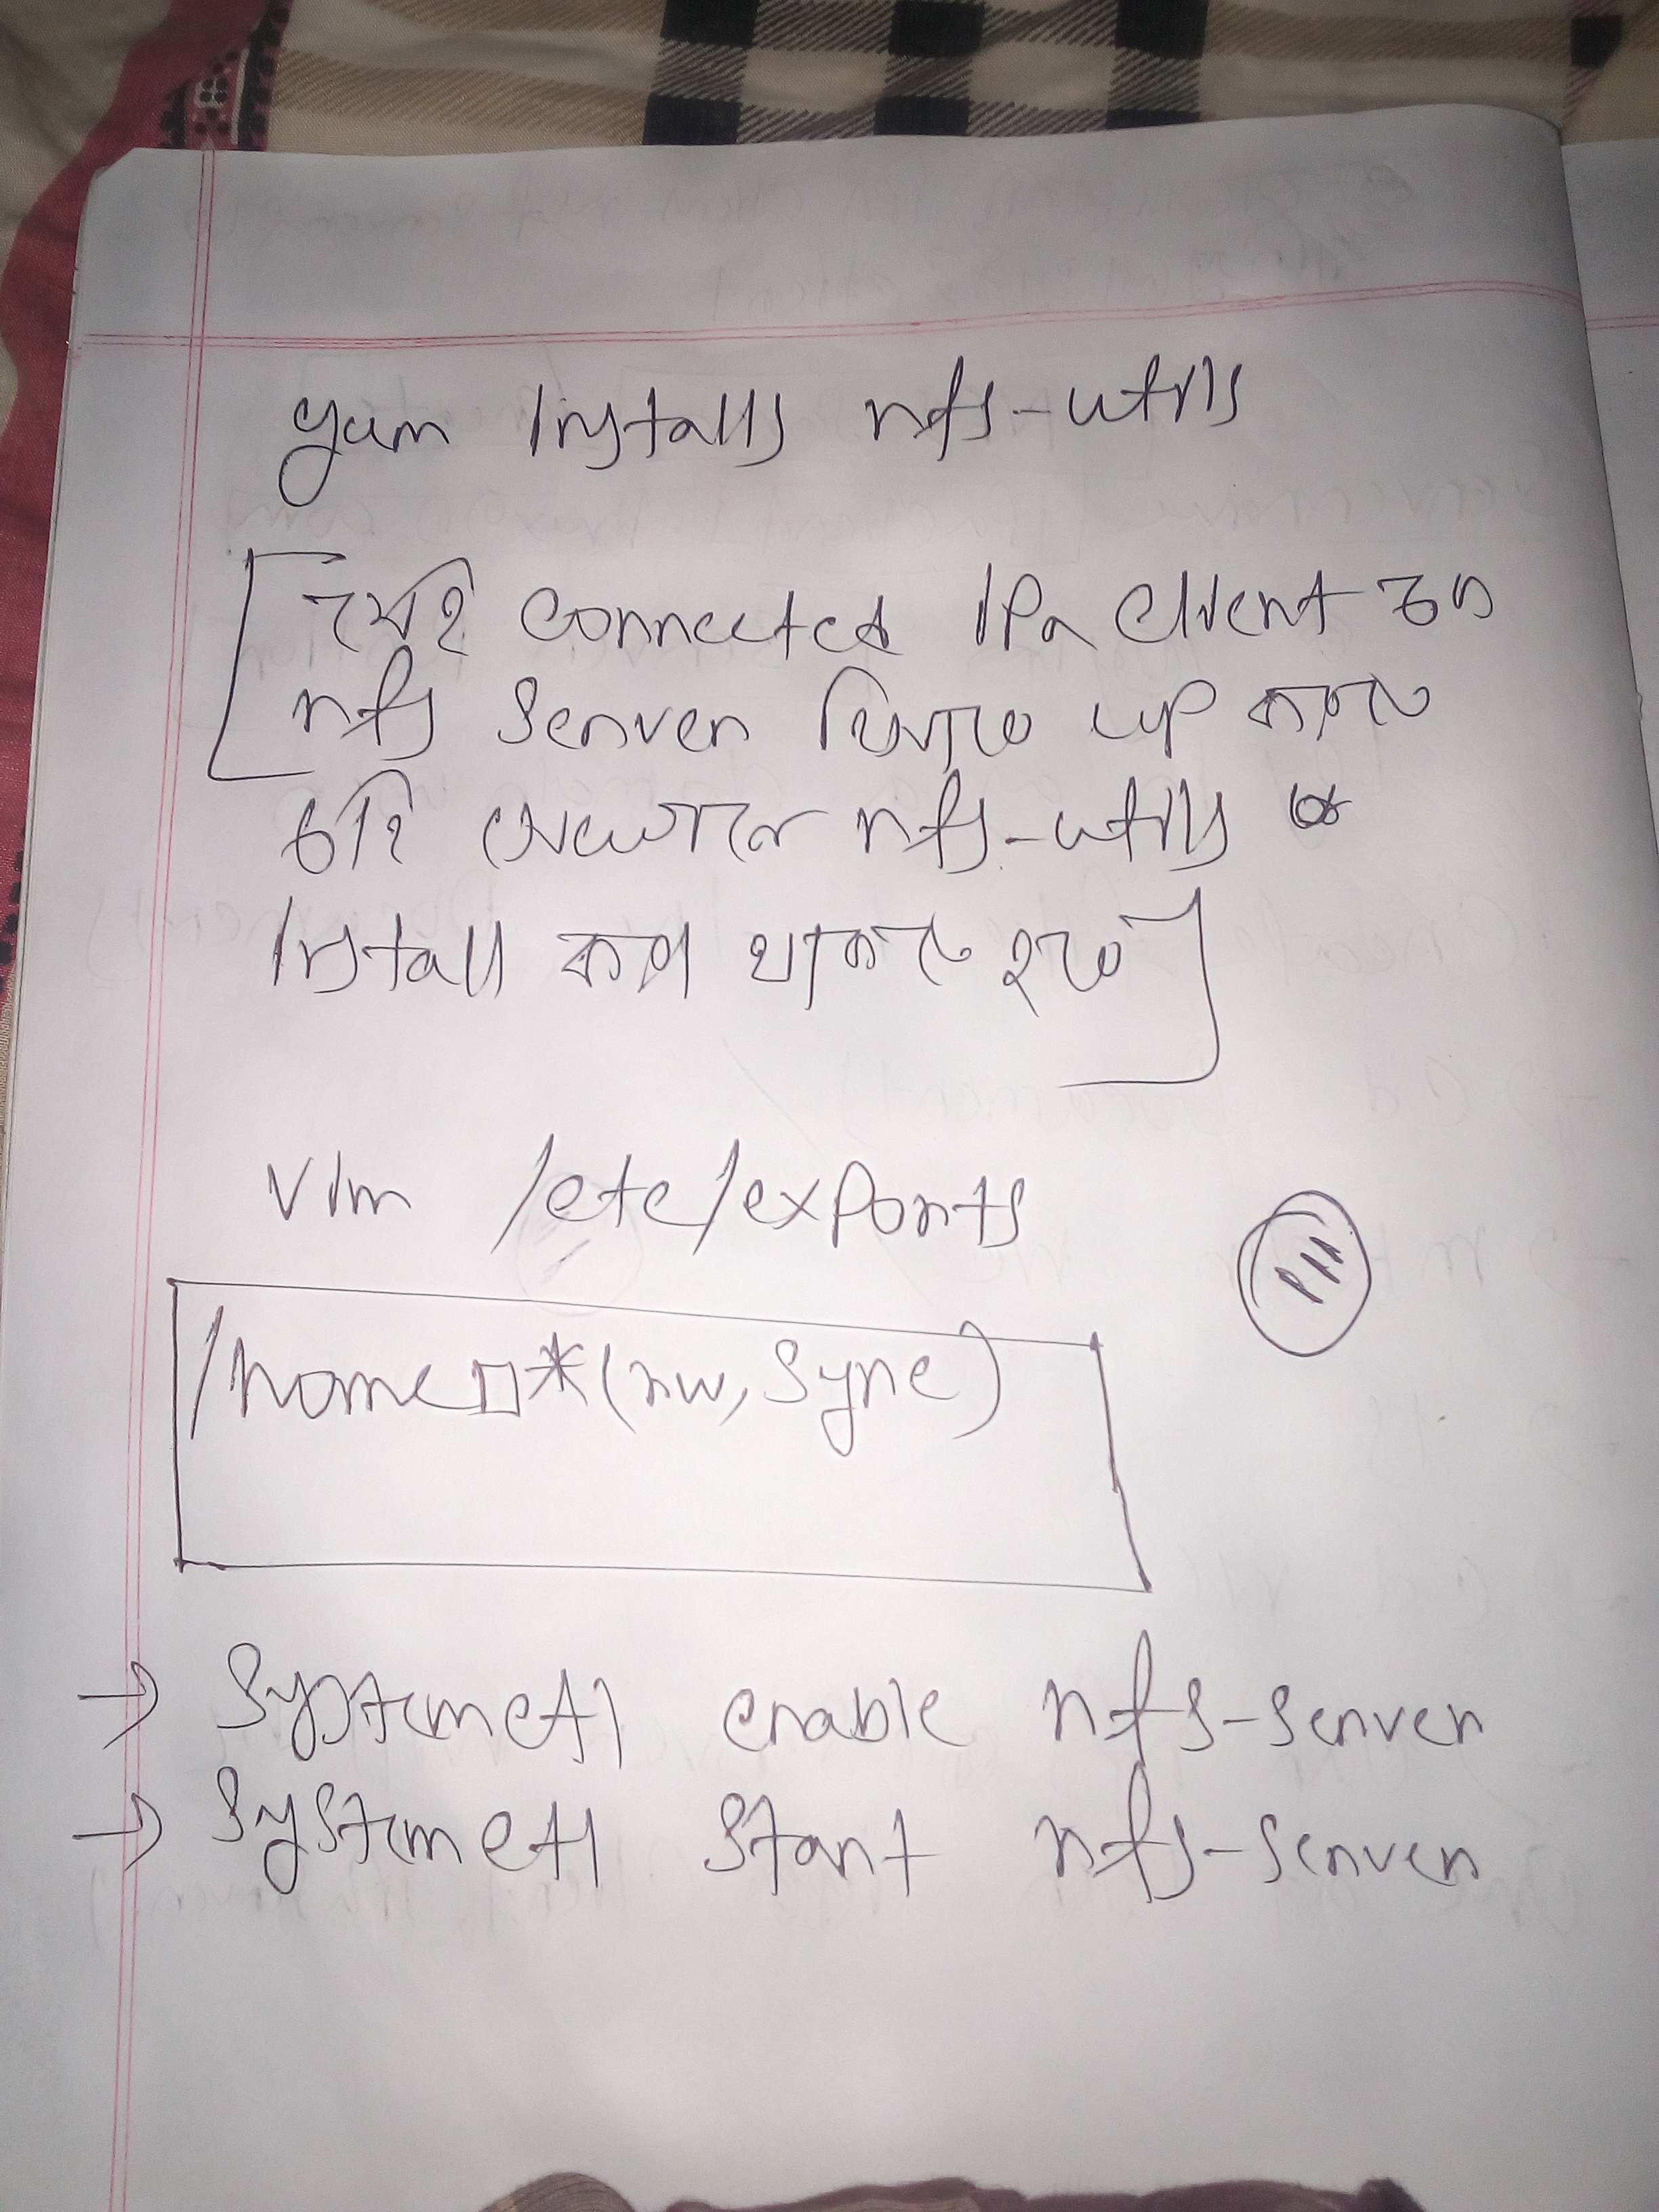 yum installs nfs-utils
যেই connected IPa client কে
nfs server হিসাবে up করতে
চাই সেখানে nfs-utils
Install করা থাকতে হবে
vim /etc/exports
/home□*(rw, sync)
→ Systemctl enable nfs-server
→ Systemctl start nfs-server